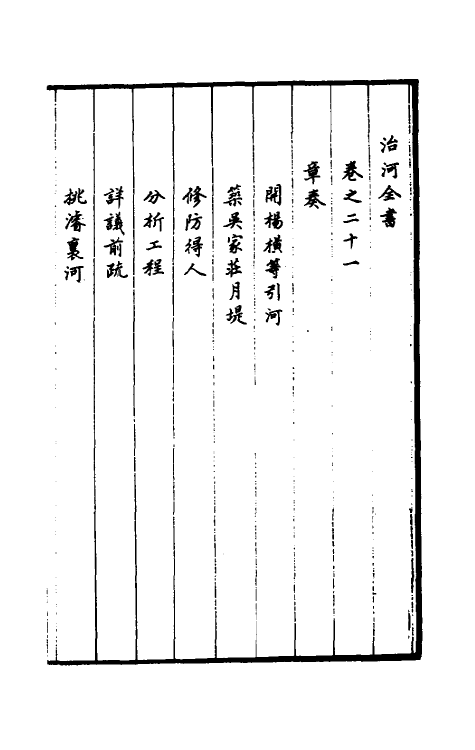 治河全書
卷之二十一
章奏
開楊橫等引河
築吳家莊月堤
修防得人
分析工程
詳議前疏
挑濬裏河